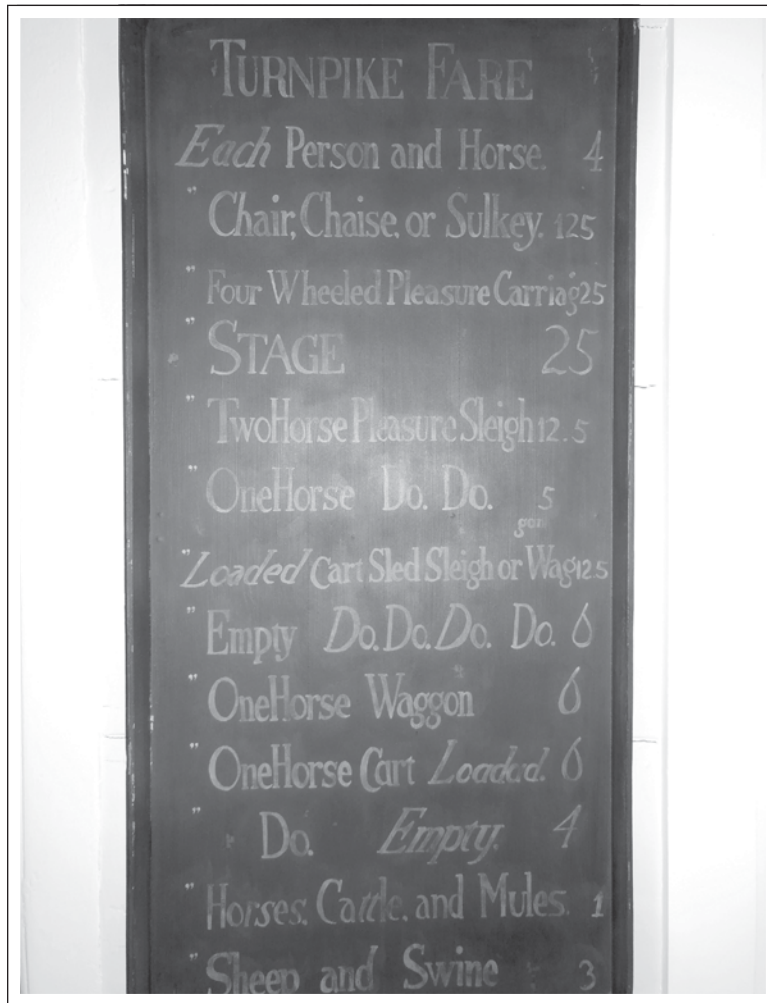 TURNPIKE FARE
Each Person and Horse. 4
" Chair, Chaise, or Sulkey. 125
" Four Wheeled Pleasure Carriag 25
" STAGE 25
" Two Horse Pleasure Sleigh 12.5
" One Horse Do. Do. 5
gon
" Loaded Cart Sled Sleigh or Wag 12.5
" Empty Do. Do. Do. Do. 6
" One Horse Waggon 6
" One Horse Cart Loaded. 6
" Do. Empty. 4
" Horses, Cattle, and Mules. 1
" Sheep and Swine 3